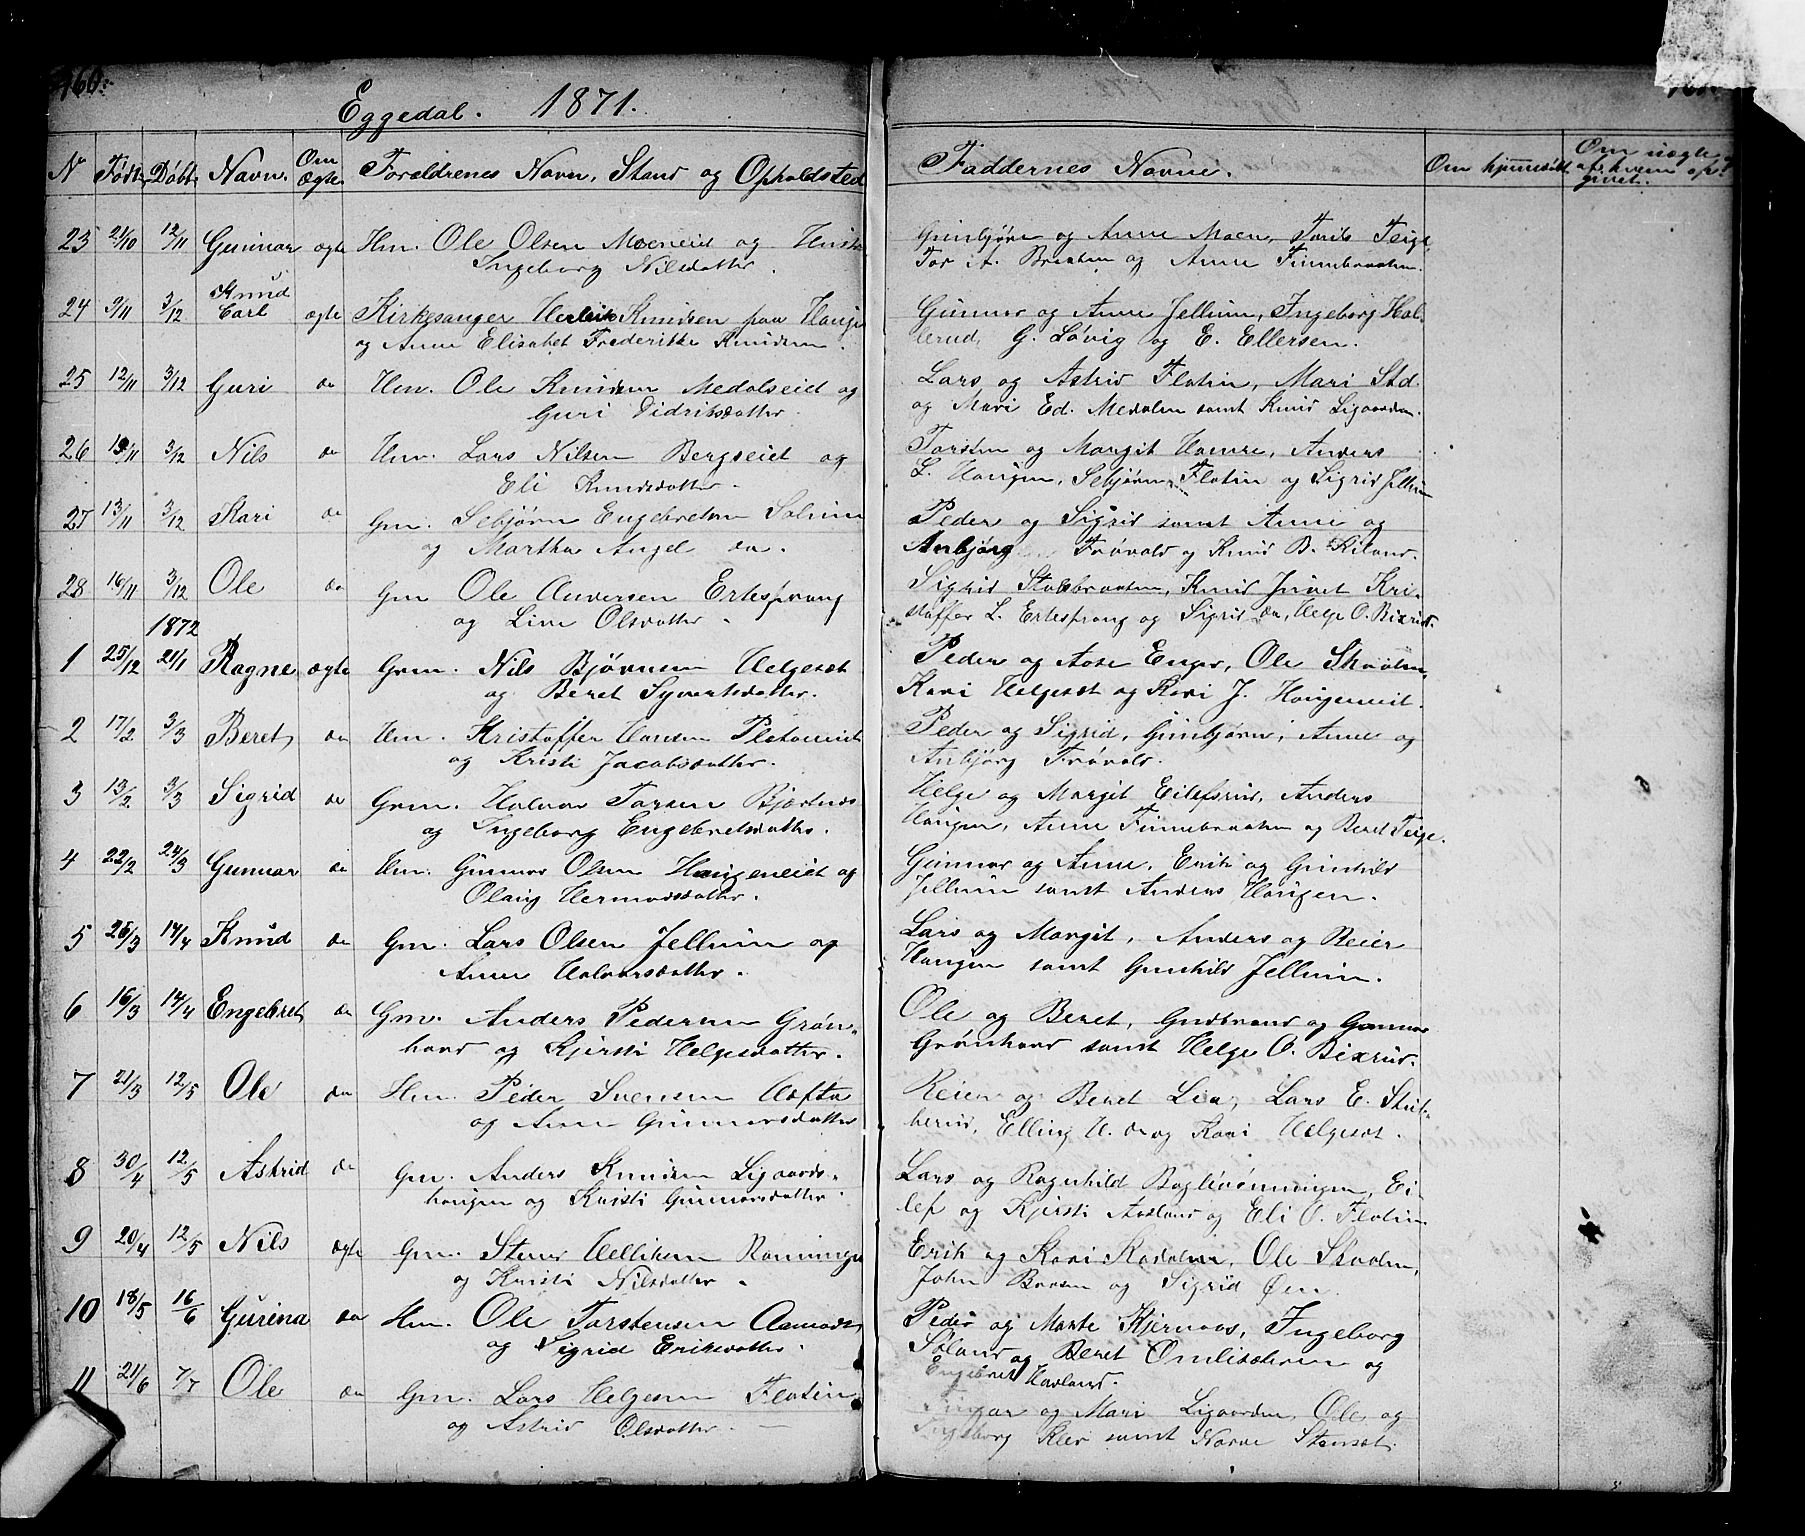 160.
Eggedal. 1871.
No Født. Døbt. Navn. Om ægte. Forældrenes Navn, Stand og Opholdsted
23 21/10 12/11 Gunnar ægte Hm. Ole Olsen Moeneiet og Hustr
Ingeborg Nilsdatter.
24 9/11 3/12 Knud Carl ægte Kirkesanger Herleik Knudsen paa Hauge
og Anne Elisabet Frederikke Knudsen.
25 12/11 3/12 Guri do Hm. Ole Knudsen Medalseiet og
Guri Didriksdatter.
26 13/11 3/12 Nils do Hm. Lars Nilsen Bergseiet og
Eli Knudsdatter.
27 13/11 3/12 Kari do Gm. Sebjørn Engebretsen Solum
og Martha Angel do.
28 16/11 3/12 Ole do Gm Ole Andersen Ertesprang
og Live Olsdatter.
1872
1 25/12 21/1 Ragne ægte Grm. Nils Bjørnsen Helgeset
og Beret Syvertsdatter.
2 17/2 3/3 Beret do Hm. Kristoffer Hansen Plataneiet
og Kristi Jacobsdatter.
3 13/2 3/3 Sigrid do Grm. Halvor Torsen Bjertnes
og Ingeborg Engebretsdatter.
4 22/2 24/3 Gunnar do Hm. Gunnar Olsen Haugeneiet og
Olaug Hermodsdatter.
5 26/3 14/4 Knud do Gm. Lars Olsen Jellum og
Anne Halvorsdatter.
6 16/3 14/4 Engebret do Gm. Anders Pedersen Grøn-
hovd og Kjersti Helgesdatter.
7 21/3 12/5 Ole do Hm. Peder Svensen Hofta
og Anne Gunnarsdatter
8 30/4 12/5 Astrid do Gm. Anders Knudsen Ligaards-
haugen og Kristi Gunnarsdatter.
9 20/4 12/5 Nils ægte Gm. Stener Helliksen Ranningen
og Kristi Nilsdatter.
10 18/5 16/6 Gurina do Hm. Ole Torstensen Aamodt
og Sigrid Eriksdatter.
11 21/6 7/7 Ole do Gm. Lars Helgesen Flatin
og Astrid Olsdatter.
Faddernes Navne. Om hjemmedøbt Om uægte, af hvem op- givet.
Gunbjørn og Anne Moen, Toril Teige
Tor A. Braaten og Anne Finnebraaten.
Gunnar og Anne Jellum, Ingeborg Hol-
lerud, G. Løvig og E. Ellersen.
Lars og Astrid Flatin, Mari Std.
og Mari Ed. Medalen samt Knud Ligaarden.
Torsten og Margit Hamre, Anders
L. Haugen, Sebjørn Flatin og Sigrid Jellum
Peder og Sigrid samt Anne og
Anbjørg Frøvold og Knud B. Kiland.
Sigrid Stabbraaten, Knud Juvet Kri-
stoffer L. Ertesprang og Sigrid do, Helge O. Bixrud.
Peder og Aase Enger, Ole Skaalen
Kari Helgeset og Kari J. Haugeneiet.
Peder og Sigrid, Gunbjørn, Anne og
Anbjørg Frøvold.
Helge og Margit Eilefsrud, Anders
Haugen, Anne Finnebraaten og Beret Teige.
Gunnar og Anne, Erik og Gunhild
Jellum samt Anders Haugen.
Lars og Margit, Anders og Reier
Haugen samt Gunhild Jellum.
Ole og Beret, Gudbrand og Gunnar
Grønhovd samt Helge O. Bixrud.
Reier og Beret Lia, Lars E. Stub-
berud, Elling H. do og Kari Helgeset.
Lars og Ragnhild Baglirønningen, Ei-
lef og Kjersti Aasland og Eli O. Flatin
Erik og Kari Kadalen, Ole Skaalen,
John Braaten og Sigrid Øen.
Peder og Marte Kjernaas, Ingeborg
Søland og Beret Omlisæteren og
Engebret Havland.
og Mari Ligaarden, Ole og
Ingeborg Klev samt Narve Stenset.